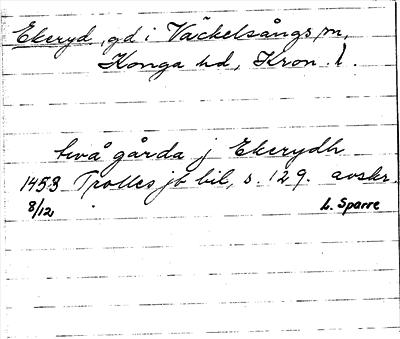 Ekeryd, gd i Väckelsångs sn,
Konga hd, Kron. l.
två gårda j Ekerydh
1453 Trolles jb bil, s. 129. avskr.
8/12 L. Sparre